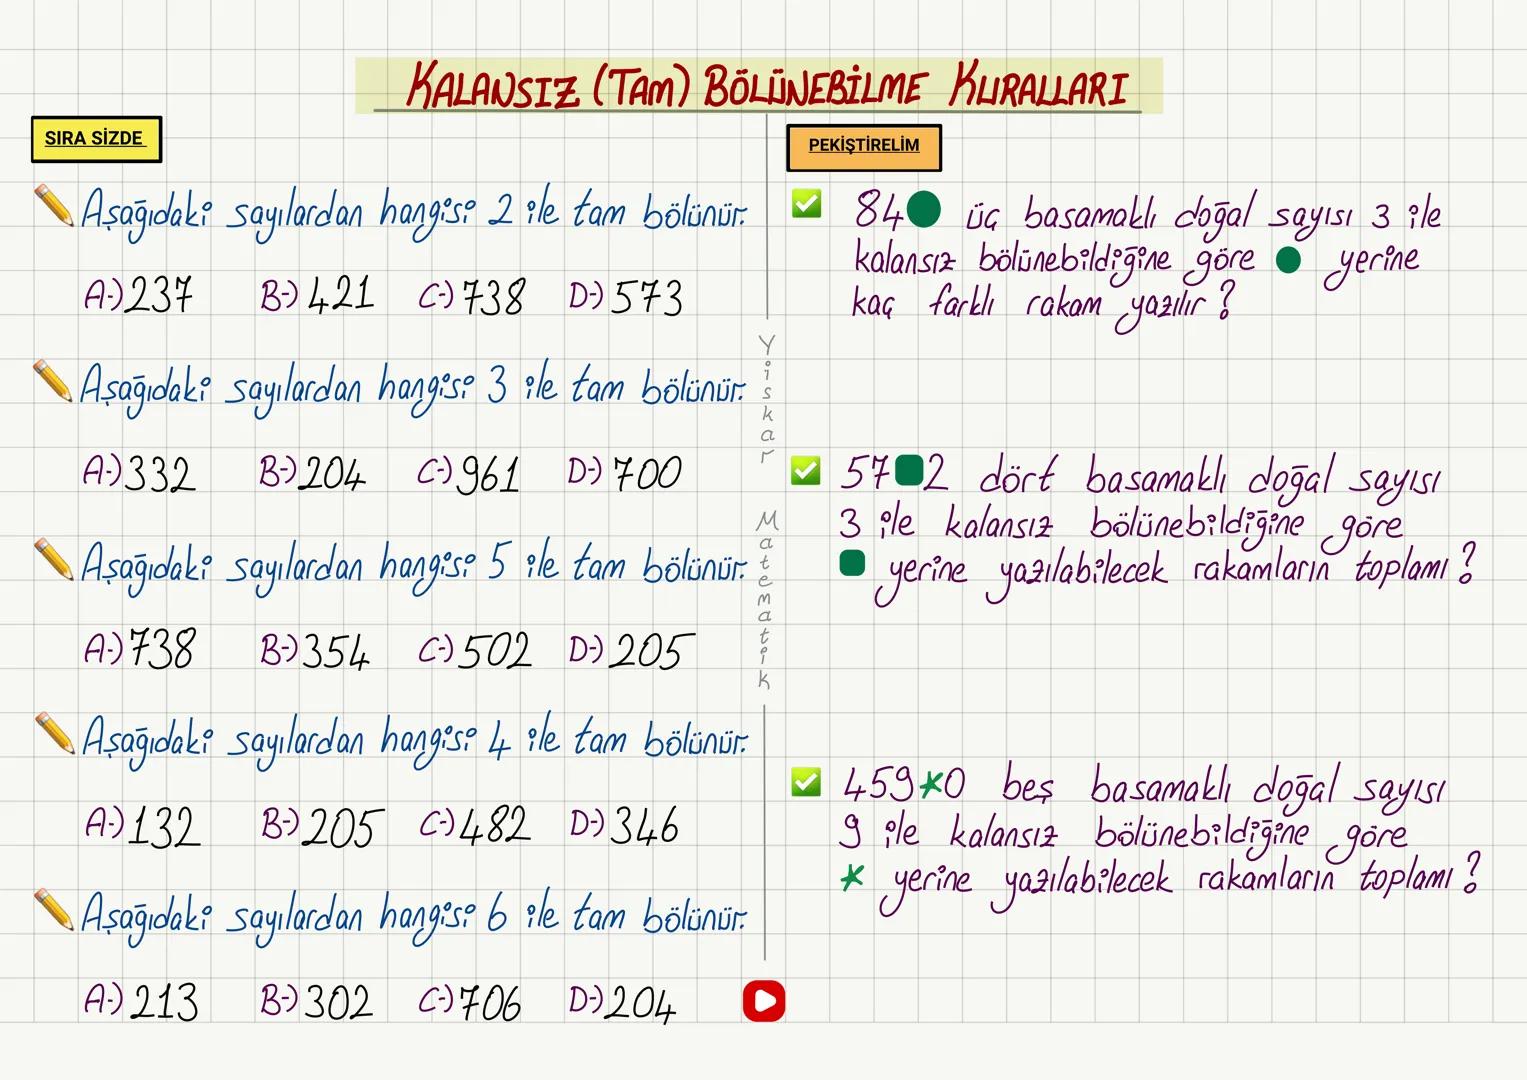 KALANSIZ (TAM) BÖLÜNEBİLME KURALLARI
SIRA SİZDE
Aşağıdaki sayılardan hangisi 2 ile tam bölünür.
A-) 237 B-) 421 C-) 738 D-) 573
Aşağıdaki sayılardan hangisi 3 ile tam bölünür.
A-) 332 B-) 204 C-) 961 D-) 700
Aşağıdaki sayılardan hangisi 5 ile tam bölünür.
A-) 738 B-) 354 C-) 502 D-) 205
Aşağıdaki sayılardan hangisi 4 ile tam bölünür.
A-) 132 B-) 205 C-) 482 D-) 346
Aşağıdaki sayılardan hangisi 6 ile tam bölünür.
A-) 213 B-) 302 C-) 706 D-) 204
Yiskar Matematik
PEKİŞTİRELİM
84● üç basamaklı doğal sayısı 3 ile
kalansız bölünebildiğine göre ● yerine
kaç farklı rakam yazılır?
57■2 dört basamaklı doğal sayısı
3 ile kalansız bölünebildiğine göre
■ yerine yazılabilecek rakamların toplamı?
459*0 beş basamaklı doğal sayısı
9 ile kalansız bölünebildiğine göre
* yerine yazılabilecek rakamların toplamı?